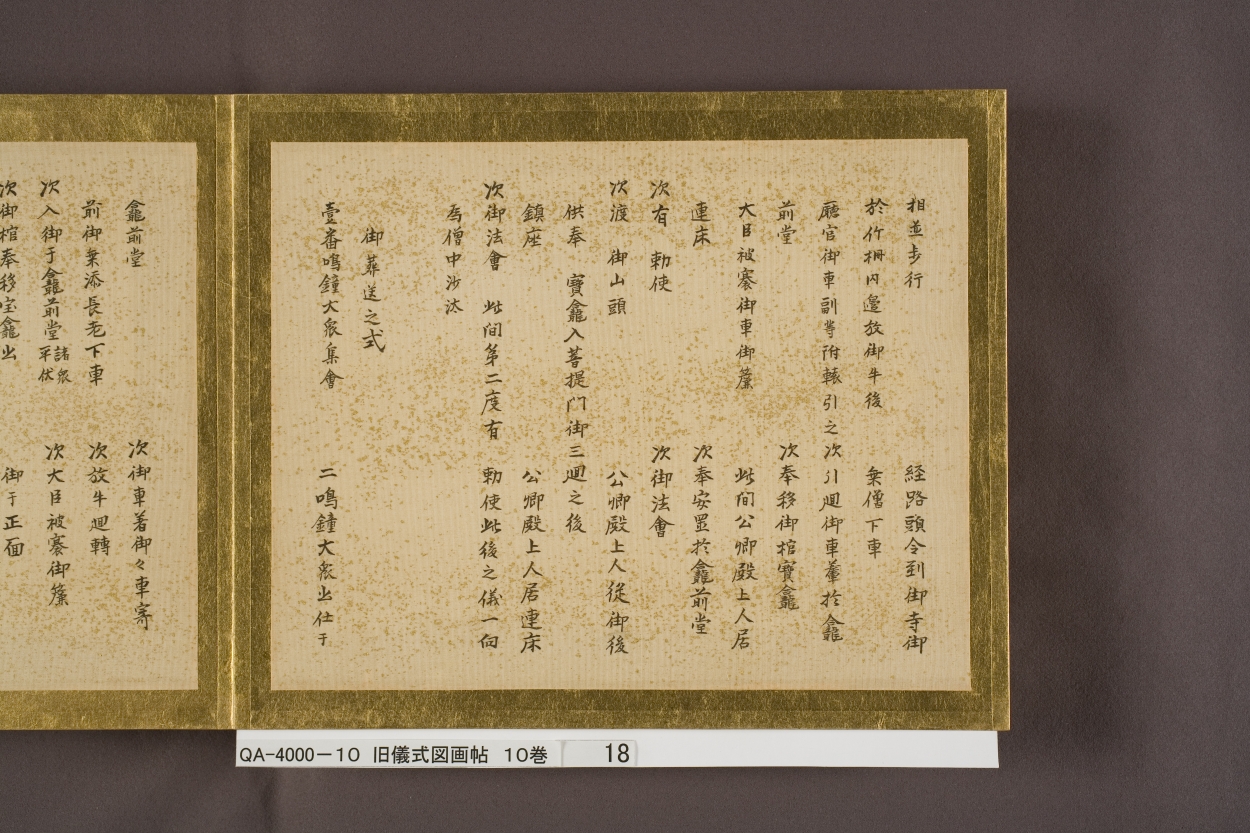 相並歩行　経路頭令到御寺御
於竹柵内邊放御牛後　乗僧下車
廳官御車副等附轅引之次引廻御車輦於龕
前堂　次奉移御棺寳龕
大臣被褰御車御簾　此間公卿殿上人居
連床　次奉安置於龕前堂
次有　勅使　次御法會
次渡　御山頭　公卿殿上人従御後
供奉　寳龕入菩提門御三廻之後
鎮座　公卿殿上人居連床
次御法會　此間第二度有　勅使此後之儀一向
為僧中沙汰
御葬送之式
壹番鳴鐘大衆集會　二鳴鐘大衆出仕于
龕前堂　次御車着御々車寄
前御乗添長老下車　次放牛廻轉
次入御于龕前堂諸衆平伏　次大臣被褰御簾
次御棺奉移宝龕出　御于正面
QA-4000-10　旧儀式図画帖　10巻　18